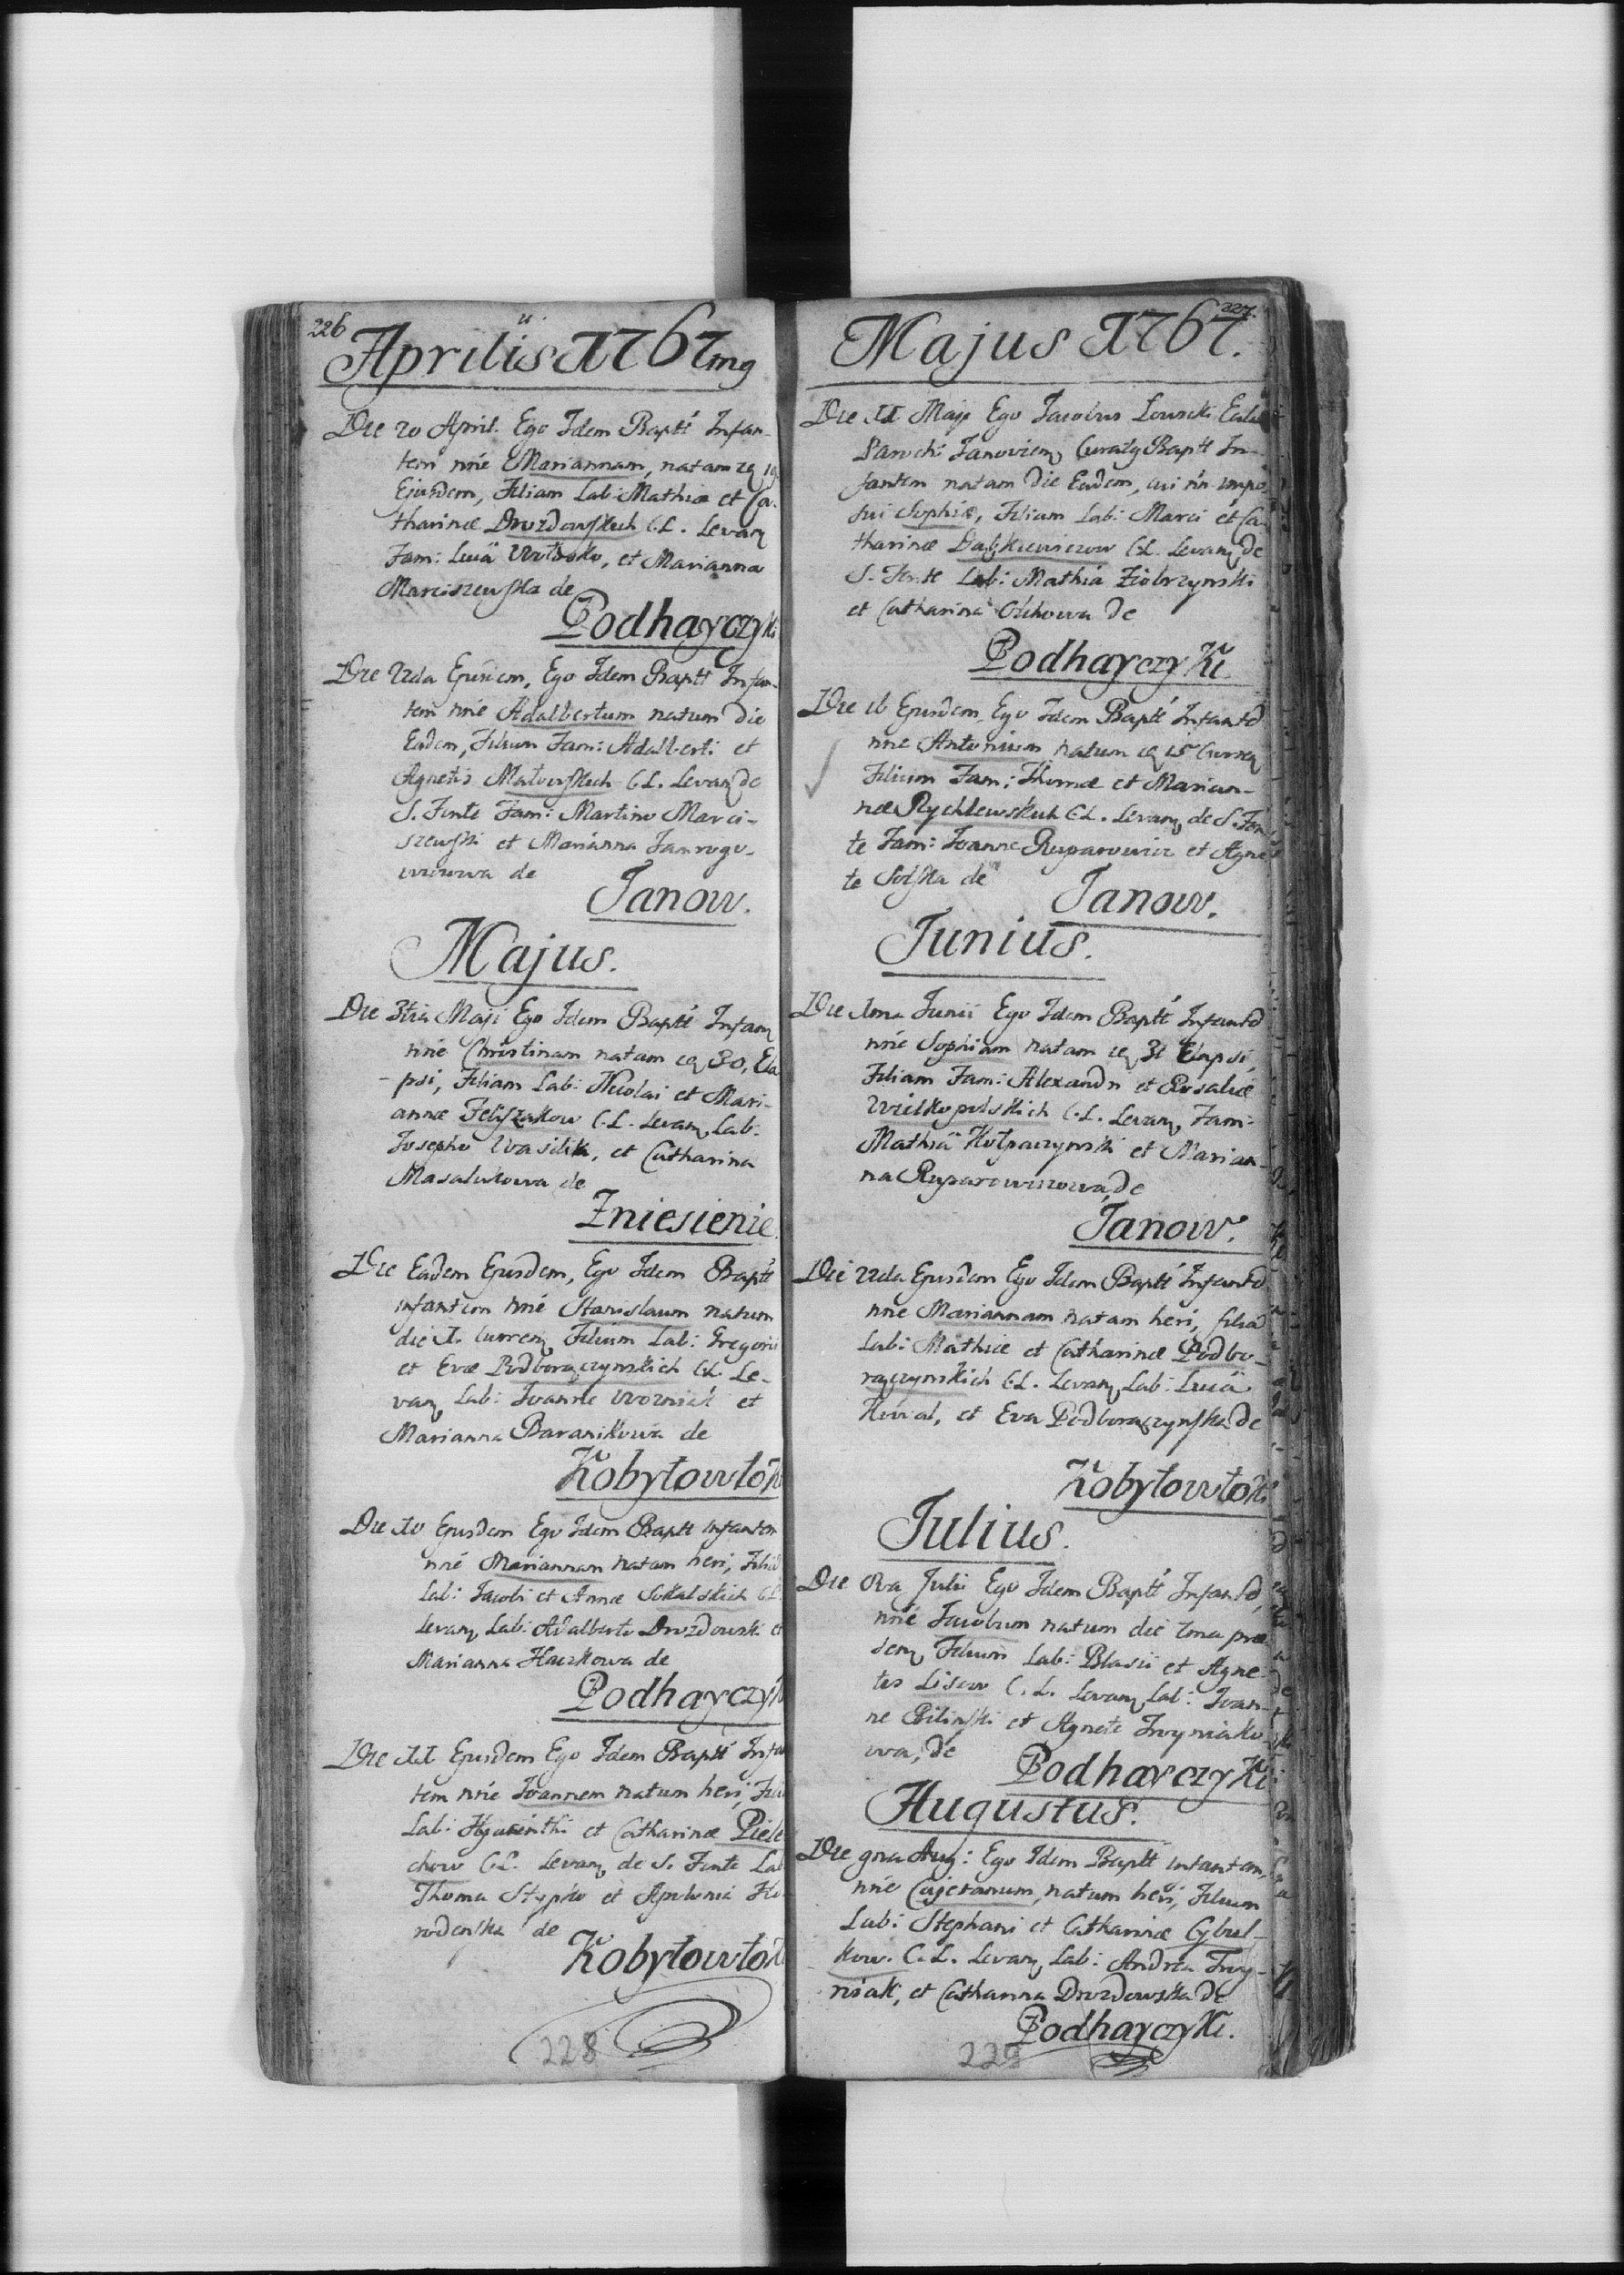 226
Aprilis 1767mg
Die 20 April. Ego Idem Baptt Infan-
tem nñe Mariannam, natam 19
Ejusdem, Filiam Lab: Mathiæ et Ca-
tharinæ Drozdowskich C.L. Levan
Fam: Lucä, et Marianna
Marciszewska de
Podhayczyki
Die 22da Ejusdem, Ego Idem Baptt Infan-
tem nñe Adalbertum natum die
Eadem, Filium Fam: Adalberti et
Agnetis C.L. Levan de
S. Fonte Fam: Martino Marci-
szewski et Marianna
de
Janow.
Majus.
Die 3tia Maji Ego Idem Baptt Infan
nñe Christinam natam 30, Ela
psi, Filiam Lab: Nicolai et Mari-
annæ C.L. Levan Lab:
Josepho Wasilik, et Catharina
Masalukowa de
Zniesienie.
Die Eadem Ejusdem, Ego Idem Baptt
infantem nñe Stanislaum natum
die 1. Curren Filium Lab: Gregorii
et Evæ Podborączynskich C.L. Le-
van Lab: Joanne Wozniak et
Marianna Baranikowa de
Kobyłowłoki
Die 10 Ejusdem Ego Idem Baptt infantem
nñe Mariannam natam heri, Filiā
Lab: Jacobi et Annæ Sokalskich C.L.
Levan Lab: Adalberto Drozdowski et
Marianna Haczkowa de
Podhayczyk
Die 11 Ejusdem Ego Idem Baptt Infan
tem nñe Joannem natum heri, Filiu
Lab: Hyacinthi et Catharinæ Piele
chow C.L. Levan de S. Fonte Lab
Thoma Stypko et Apolonia Ho-
rodenska de
Kobyłowłok
228
227.
Majus 1767.
Die 11 Maji Ego Jacobus Eccle
Paroch: Janovien Curatq Baptt In-
fantem natam Die Eadem, cui nñ impo
sui Sophiæ, Filiam Lab: Marci et Ca-
tharinæ C.L. Levan de
S. Fonte Lab: Mathia Ziobrzynski
et Catharina Olichowa de
Podhayczyki
Die 16 Ejusdem Ego Idem Baptt Infantē
nñe Antonium natum 15 Curren
Filium Fam: Thomæ et Marian-
næ Rychlewskich C.L. Levan de S. Fon
te Fam: Joanne Ruparowicz et Agne
te Solska de
Janow.
Junius.
Die 1ma Junii Ego Idem Baptt Infantē
nñe Sophiam natam 31 Elapsi,
Filiam Fam: Alexandri et Rosaliæ
Wielkopolskich C.L. Levan Fam:
Mathiä Kołpaczynski et Marian-
na Ruparowiczowa, de
Janow.
Die 22da Ejusdem Ego Idem Baptt Infantē
nñe Mariannam natam heri, filiā
Lab: Mathiæ et Catharinæ Podbo-
rączynskich C.L. Levan Lab: Lucä
Kowal, et Eva Podborączynska de
Kobyłowłoki
Julius.
Die 8va Julii Ego Idem Baptt Infantē,
nñe Jacobum natum die præ
sen Filium Lab: Blasii et Agne-
tes Lisow C.L. Levan Lab: Joan-
ne Bilinski et Agnete Iwyniako
wa, de
Podhayczyki
Augustus.
Die 9na Aug: Ego Idem Baptt infantem,
nñe Cajetanum, natum heri, Filium
Lab: Stephani et Catharinæ Cybul-
kow. C.L. Levan Lab: Andrea Iwy-
niak, et Catharina Drozdowska de
Podhayczyki.
229